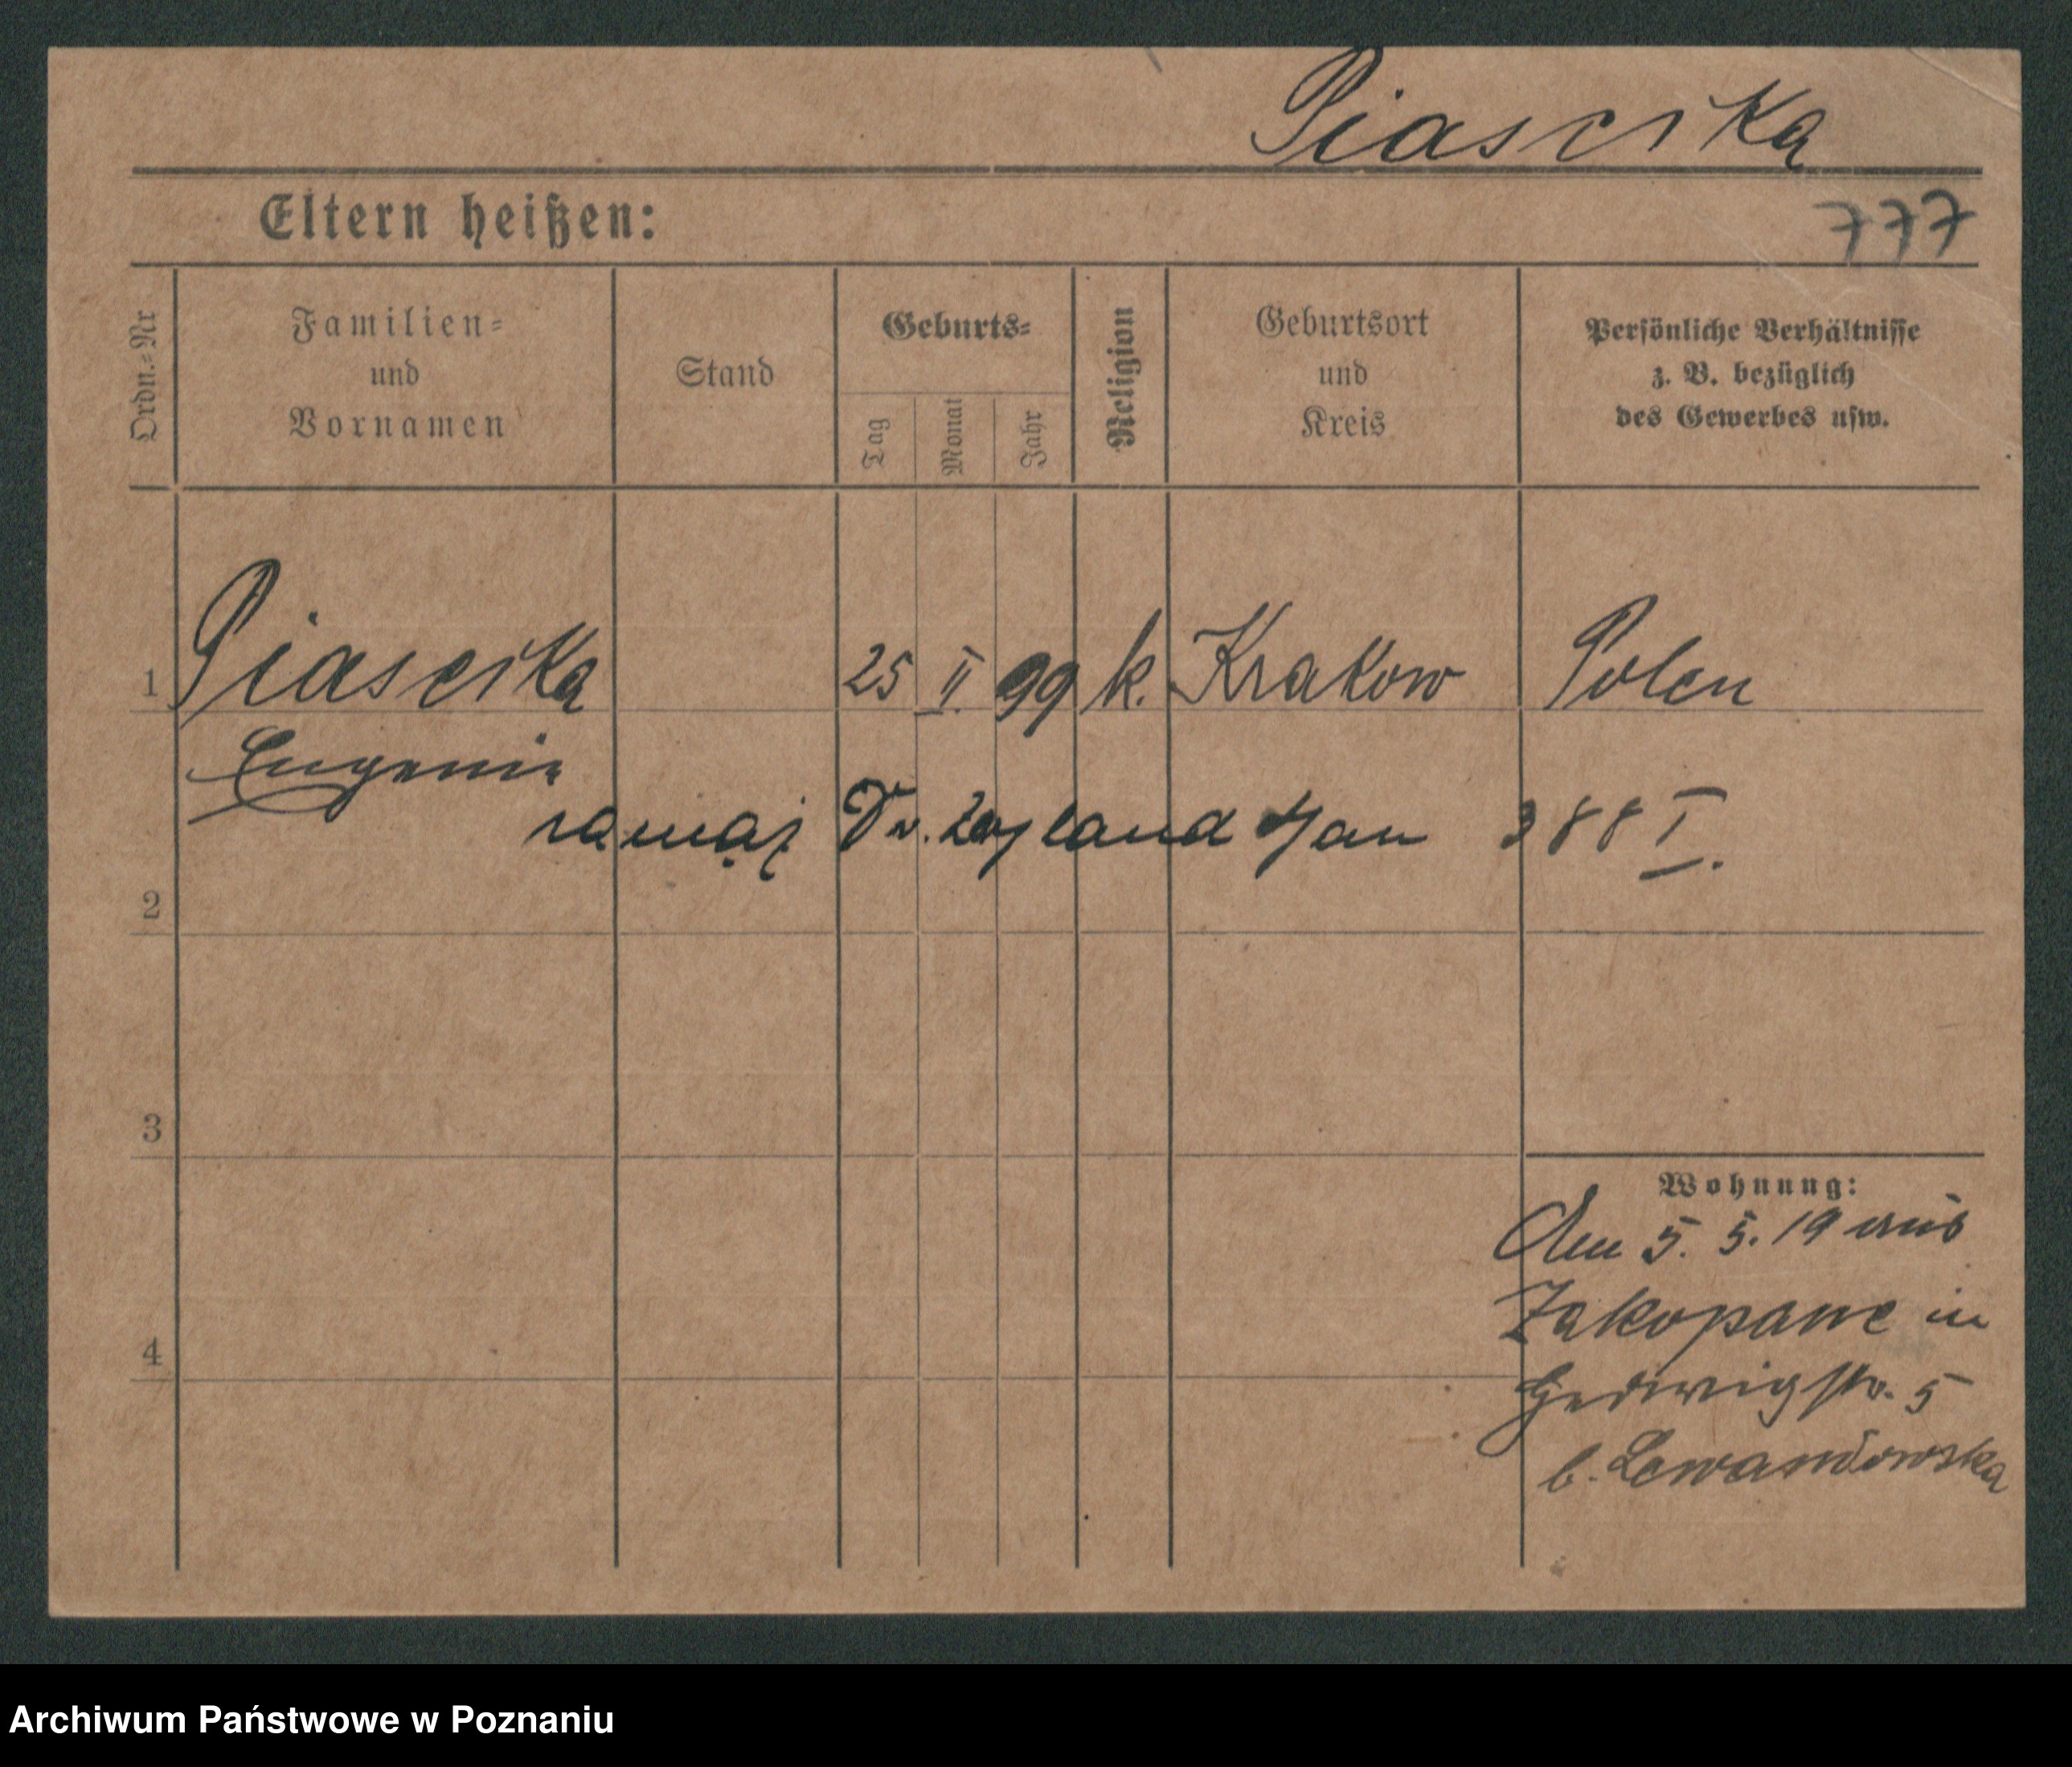 Piasecka
777
Eltern heißen:
Ordn.-Nr
Familien-
und
Vornamen
Stand
Geburts-
Tag
Monat
Jahr
Religion
Geburtsort
und
Kreis
Persönliche Verhältnisse
z. B. bezüglich
des Gewerbes usw.
1 Piasecka 25 II. 99 k. Krakow Polen
Eugenie
zamęż Dr. Jan 388 I.
2
3
4
Wohnung:
Am 5. 5. 19 aus
Zakopane in
Hedwigstr. 5
b. Lewandowska
Archiwum Państwowe w Poznaniu